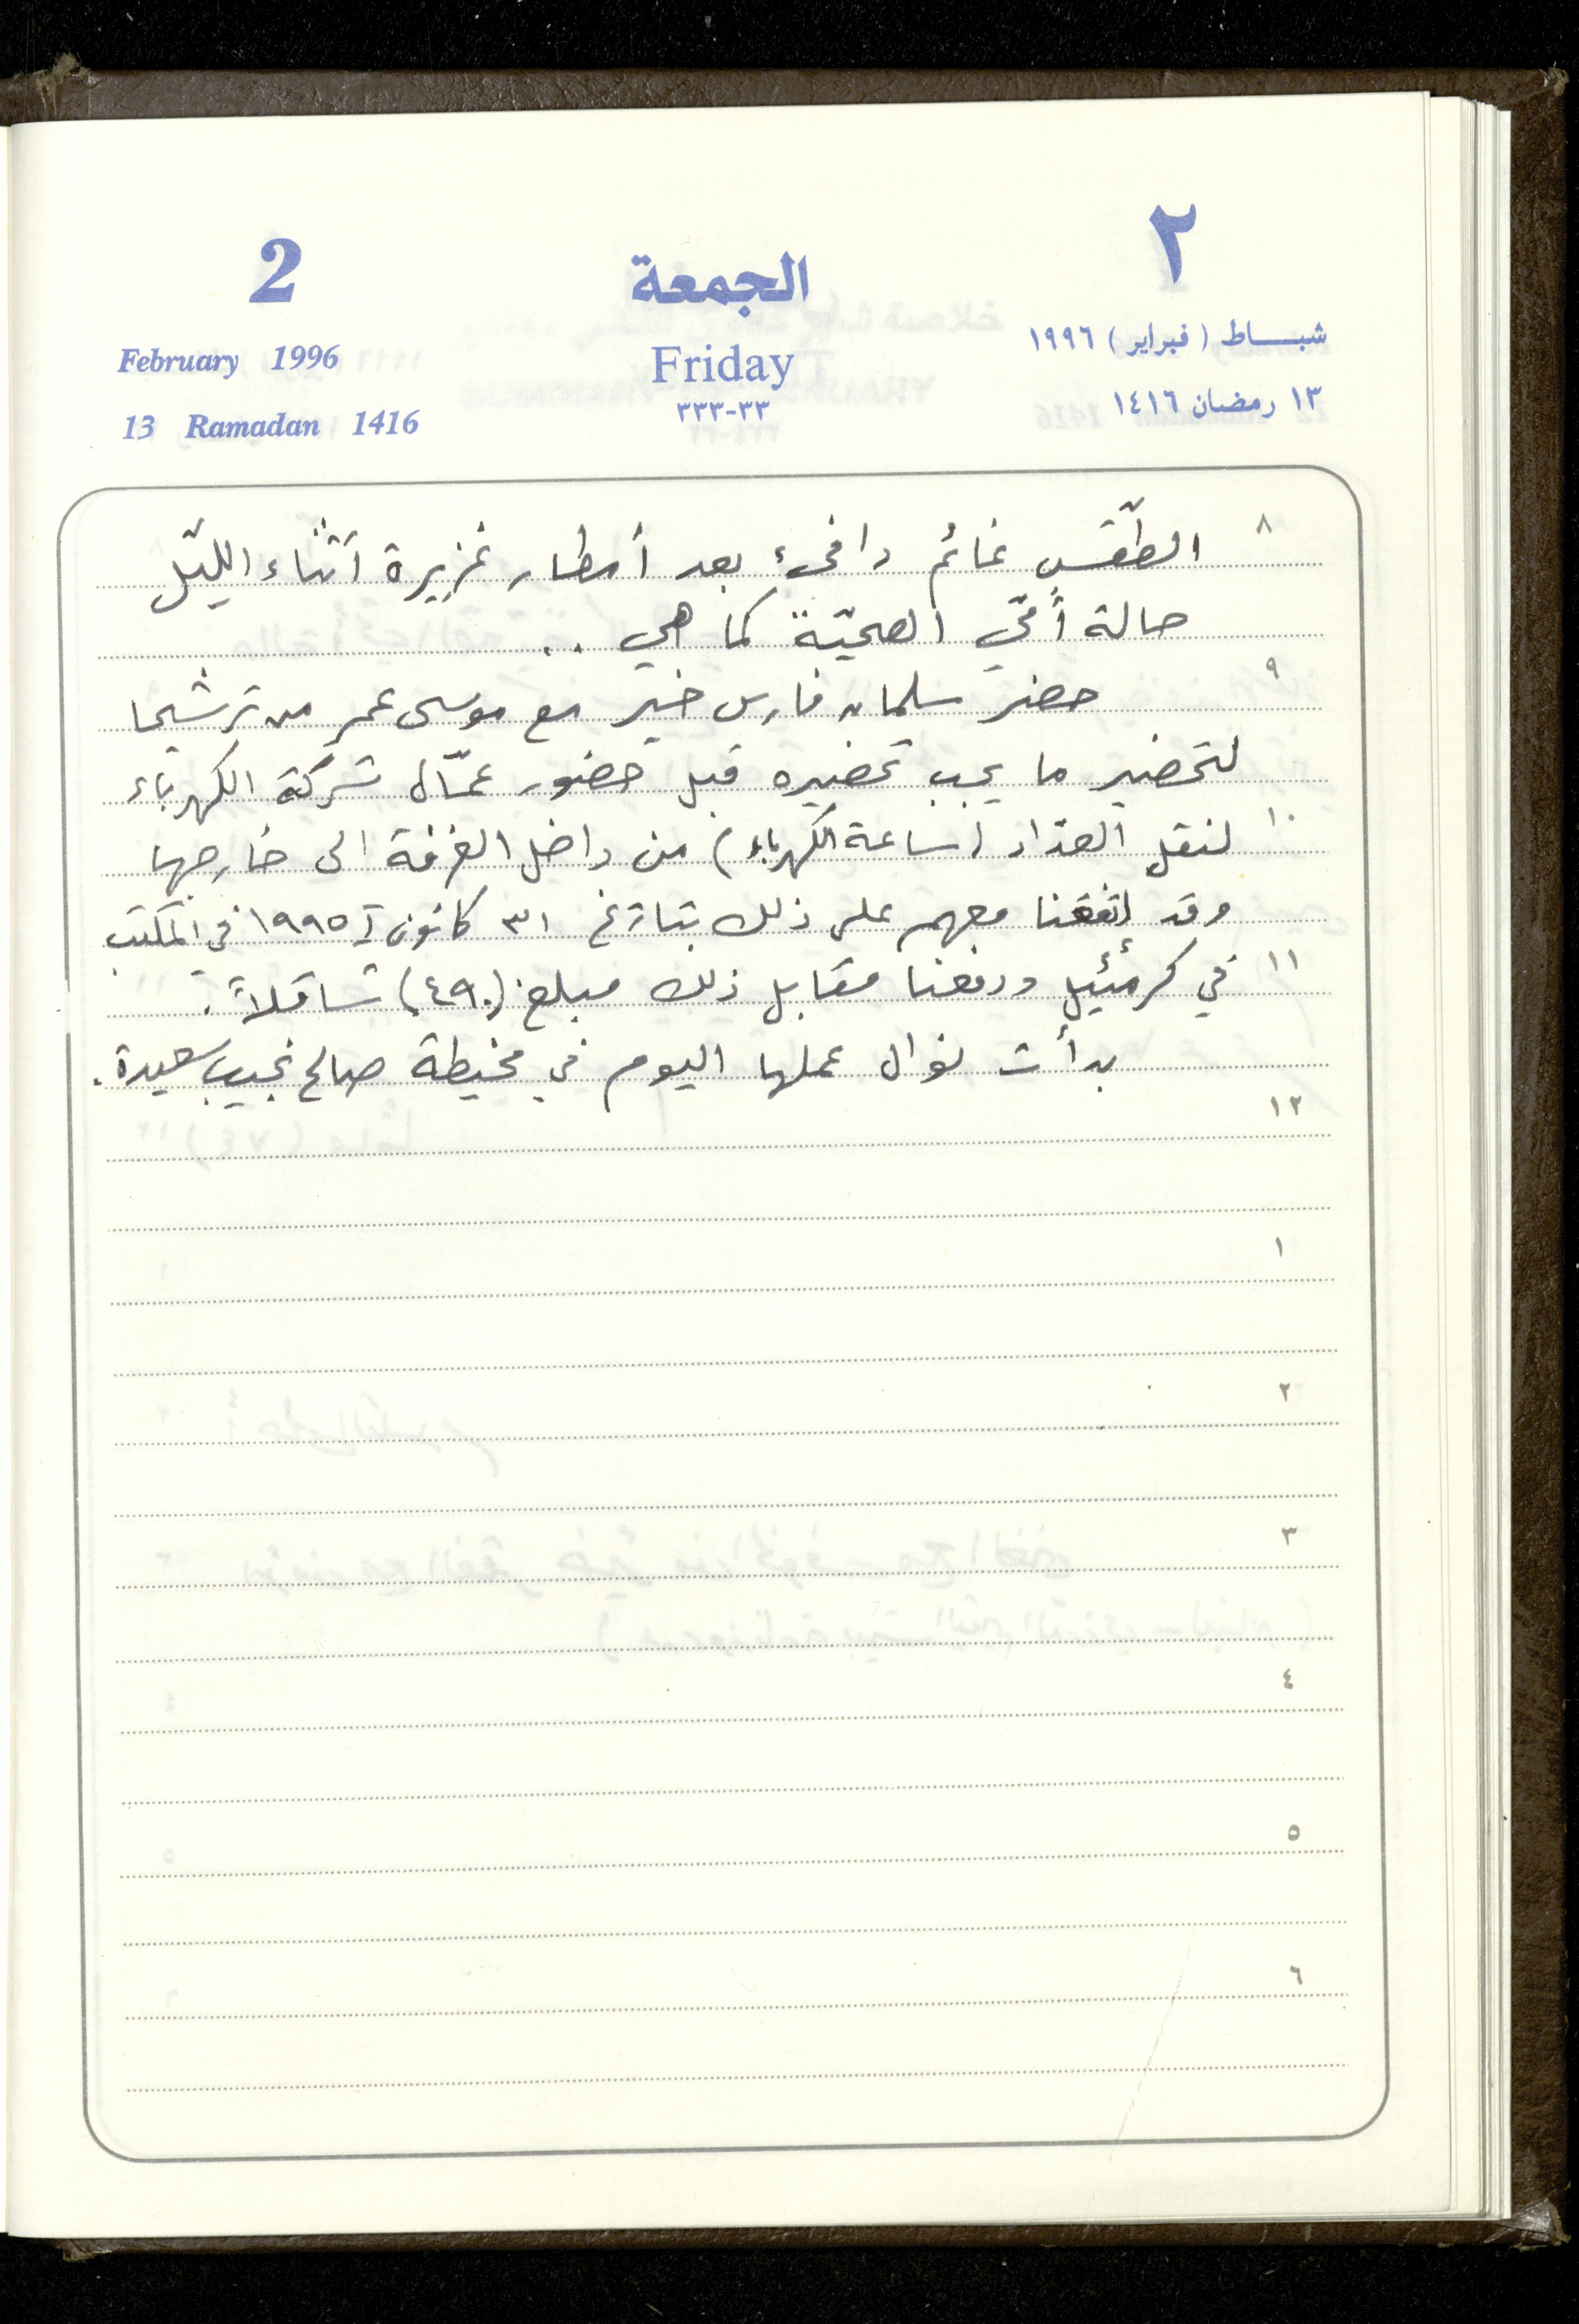 2 الجمعة ٢
February 1996 Friday شبـــاط (فبراير) ١٩٩٦
13 Ramadan 1416 ٣٣-٣٣٣ ١٣ رمضان ١٤١٦
٨ الطّقس غائم دافىء بعد أمطار غزيرة أثناء الليّل
حالة أمّي الصحيّة كما هي ..
٩
حضر سلمان فارس خير مع موسى عمر من ترشيحا
لتحضير ما يجب تحضيره قبل حضور عمّال شركة الكهرباء
١٠ لنقل العدّاد (ساعة الكهرباء) من داخل الغرفة الى خارجها
وقد إتفقنا معهم على ذلك بتاريخ ٣١ كانون I ١٩٩٥ في المكتب
١١ في كرمئيل ودفعنا مقابل ذلك مبلغ (٤٩٠) شاقلاً.
بدأت نوال عملها اليوم في مخيطة صالح نجيب سعيدة.
١٢
١
٢
٣
٤
٥
٦